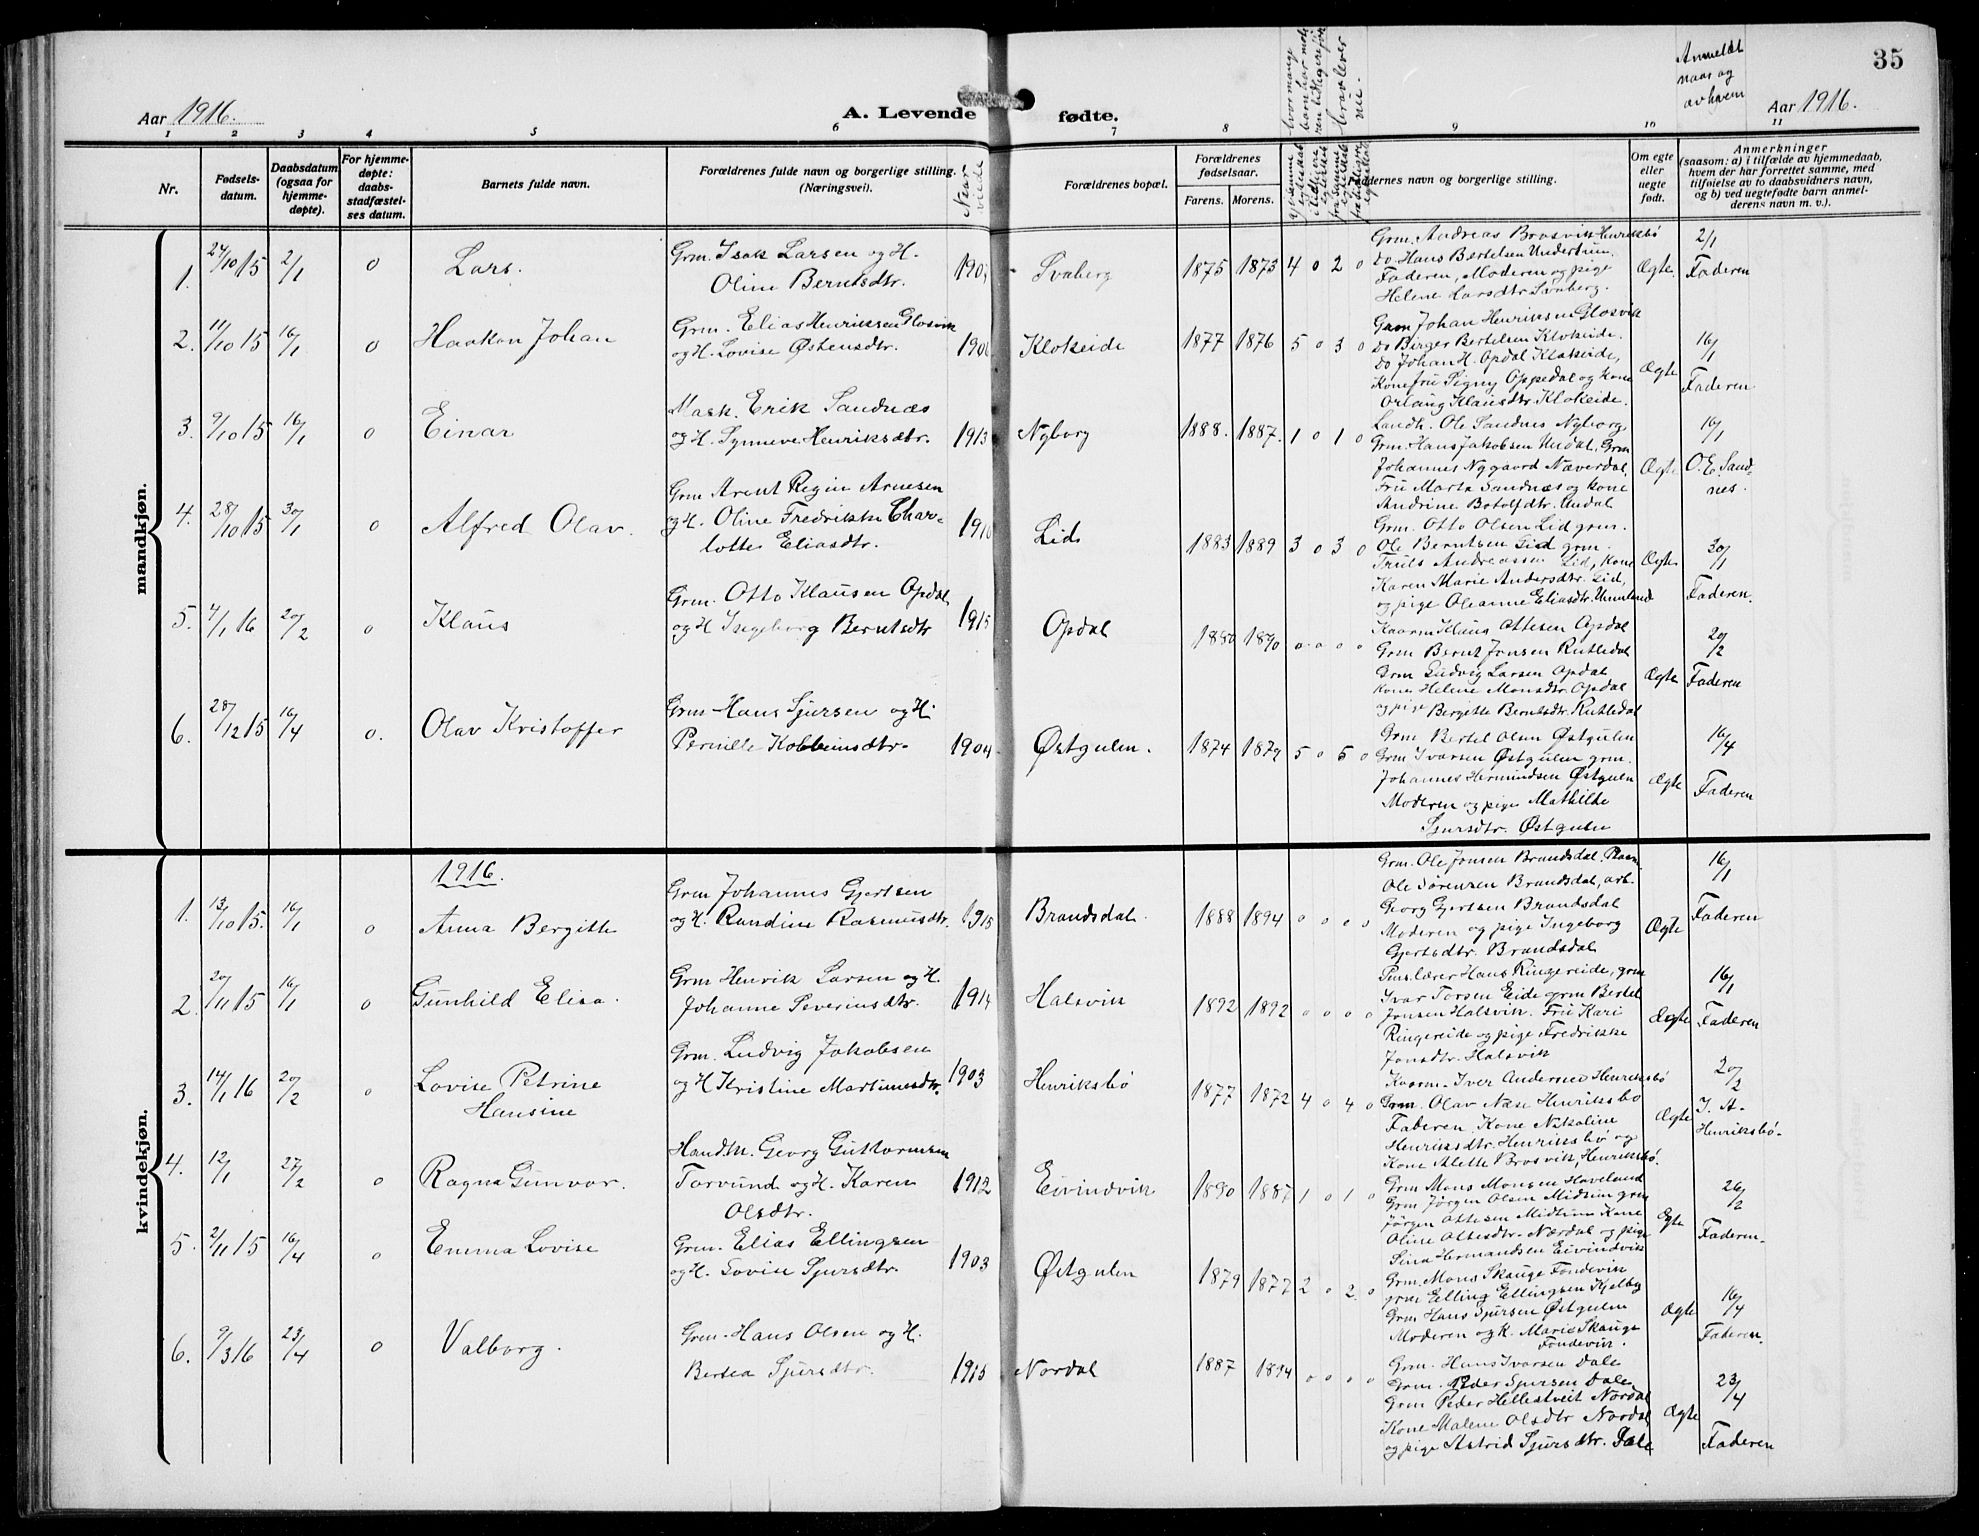 35
Aar 1916.
A. Levende fødte.
Anmeldt
naar og
av hvem
Aar 1916.
1 2 3 4 5 6 7 8 9 10 11
Nr.
Fødsels-
datum.
Daabsdatum
(ogsaa for
hjemme-
døpte).
For hjemme-
døpte:
daabs-
stadfæstel-
ses datum.
Barnets fulde navn.
Forældrenes fulde navn og borgerlige stilling.
(Næringsvei).
Naar
viede
Forældrenes bopæl.
Forældrenes
fødselsaar.
Farens. Morens.
Faddernes navn og borgerlige stilling.
Om egte
eller
uegte
født.
Anmerkninger
(saasom: a) i tilfælde av hjemmedaab,
hvem der har forrettet samme, med
tilføielse av to daabsvidners navn,
og b) ved uegtefødte barn anmel-
derens navn m. v.).
mandkjøn.
1. 27/10 15 2/1 o Lars.
Grm. Isak Larsen og H.
Oline Berntsdtr.
Svaberg 1875 1873 4 o 2 o
Grm. Andreas Brosvik Henriksbø
do Hans Bertelsen Undertun.
Faderen, Moderen og pige
Helene Larsdtr Svaberg.
Ægte. 2/1 Faderen
2. 11/10 15 16/1 o Haakon Johan
Grm. Elias Henriksen Glosvik
og H. Lovise Østensdtr.
Klokeide 1877 1876 5 o 3 o
Grm Johan Henriksen Glosvik
do Birger Bertelsen Klokeide.
do Johan H. Opdal Klokeide,
Kone fru Signy Oppedal og kone
Orlaug Klausdtr Klokeide.
Ægte 16/1 Faderen
3. 9/10 15 16/1 o Einar
Mask. Erik Sandnæs
og H. Synneve Henriksdtr. 1913
Nyborg 1888. 1887. 1 o 1 o
Landh. Ole Sandnes Nyborg,
Grm. Hans Jakobsen Undal, Grm
Johannes Nygaard Næverdal,
Fru Marta Sandnæs og kone
Andrine Botolfdtr. Undal
Ægte 16/1 O. E. Sand-
nes.
4. 28/10 15 30/1 o Alfred Olav.
Grm Arent Regin Arnesen
og H. Oline Fredrikke Char-
lotte Eliasdtr. 1910
Lid 1883 1889 3 o 3 o
Grm. Otto Olsen Lid grm.
Ole Berntsen Lid grm.
Truls Andreassen Lid, kone
Karen Marie Andersdtr. Lid,
og pige Oleanne Eliasdtr.
Ægte 30/1 Faderen.
5. 4/1 16 20/2 o Klaus
Grm. Otto Klausen Opdal
og H Ingeborg Berntsdtr 1915
Opdal 1880 1890 o o o o
Kaarm Klaus Ottesen Opdal
Grm Bernt Jonsen Rutledal
Grm Ludvig Larsen Opdal
kone Helene Monsdtr. Opdal
og pige Bergitte Berntsdtr. Rutledal
Ægte 20/2 Faderen
6. 28/12 15 16/4 o. Olav Kristoffer
Grm Hans Sjursen og H.
Pernille Kolbeinsdtr. 1904
Østgulen. 1874 1879 5 o 5 o
Grm Bertel Olsen Østgulen
Grm Ivarsen Østgulen grm.
Johannes Hermundsen Østgulen
Moderen og pige Mathilde
Sjursdtr. Østgulen
Ægte 16/4 Faderen
kvindekjøn.
1916.
1. 13/10 15. 16/1 o Anna Bergitte
Grm Johannes Gjertsen
og H. Randine Rasmusdtr. 1915
Brandsdal. 1888 1894 o o o o
Grm. Ole Jonsen Brandsdal,
Ole Sørensen Brandsdal, arb.
Georg Gjertsen Brandsdal
Moderen og pige Ingeborg
Gjertsdtr. Brandsdal
Ægte 16/1 Faderen
2. 20/11 15 16/1 o Gunhild Elisa.
Grm Henrik Larsen og H.
Johanne Severinsdtr. 1914
Halsvik 1892 1892 o o o o
Penslærer Hans Ringereide, grm
Ivar Torsen Eide grm Bertel
Jonsen Halsvik. Fru Kari
Ringereide og pige Fredrikke
Jonsdtr. Halsvik
Ægte 16/1 Faderen
3. 14/1 16 20/2 o Lovise Petrine
Hansine
Grm. Ludvig Jakobsen
og H Kristine Martinusdtr. 1903
Henriksbø 1877 1872 4 o 4 o
Kaarm. Iver Andersen Henriksbø
Grm. Olav Næse Henriksbø
Faderen. Kone Nikoline
Henriksdtr. Henriksbø og
Kone Alette Brosvik, Henriksbø.
Ægte 20/2 I. A.
Henriksbø.
4. 12/1 27/2 o Ragna Gunvor.
Handm. Georg Guttormsen
Torvund og H. Karen
Olsdtr. 1912
Eivindvik 1890 1887 1 o 1 o
Grm Mons Monsen Haveland
Grm Jørgen Olsen Midtun grm
Jørgen Ottesen Midtun Kone
Oline Ottesdtr. Nordal og pige
Sina Hermandsen Eivindvik
Egte 26/2 Faderen.
5. 2/11 15 16/4 o Emma Lovise
Grm. Elias Ellingsen
og H. Lovise Sjursdtr. 1903
Østgulen 1879 1877 2 o 2 o
Grm. Mons Skauge Fondevik
grm Elling Ellingsen Kjelby
Grm Hans Sjursen Østgulen
Moderen og K. Marie Skauge
Fondevik.
Ægte 16/4 Faderen.
6. 9/3 16 23/4 o Valborg.
Grm. Hans Olsen og H.
Bertea Sjursdtr. 1913
Nordal 1887 1894 o o o o
Grm. Hans Ivarsen Dale
Grm. Peder Sjursen Dale
Grm Peder Hellestveit Nordal
Kone Malene Olsdtr Nordal
og pige Astrid Sjursdtr. Dale
Ægte 23/4 Faderen